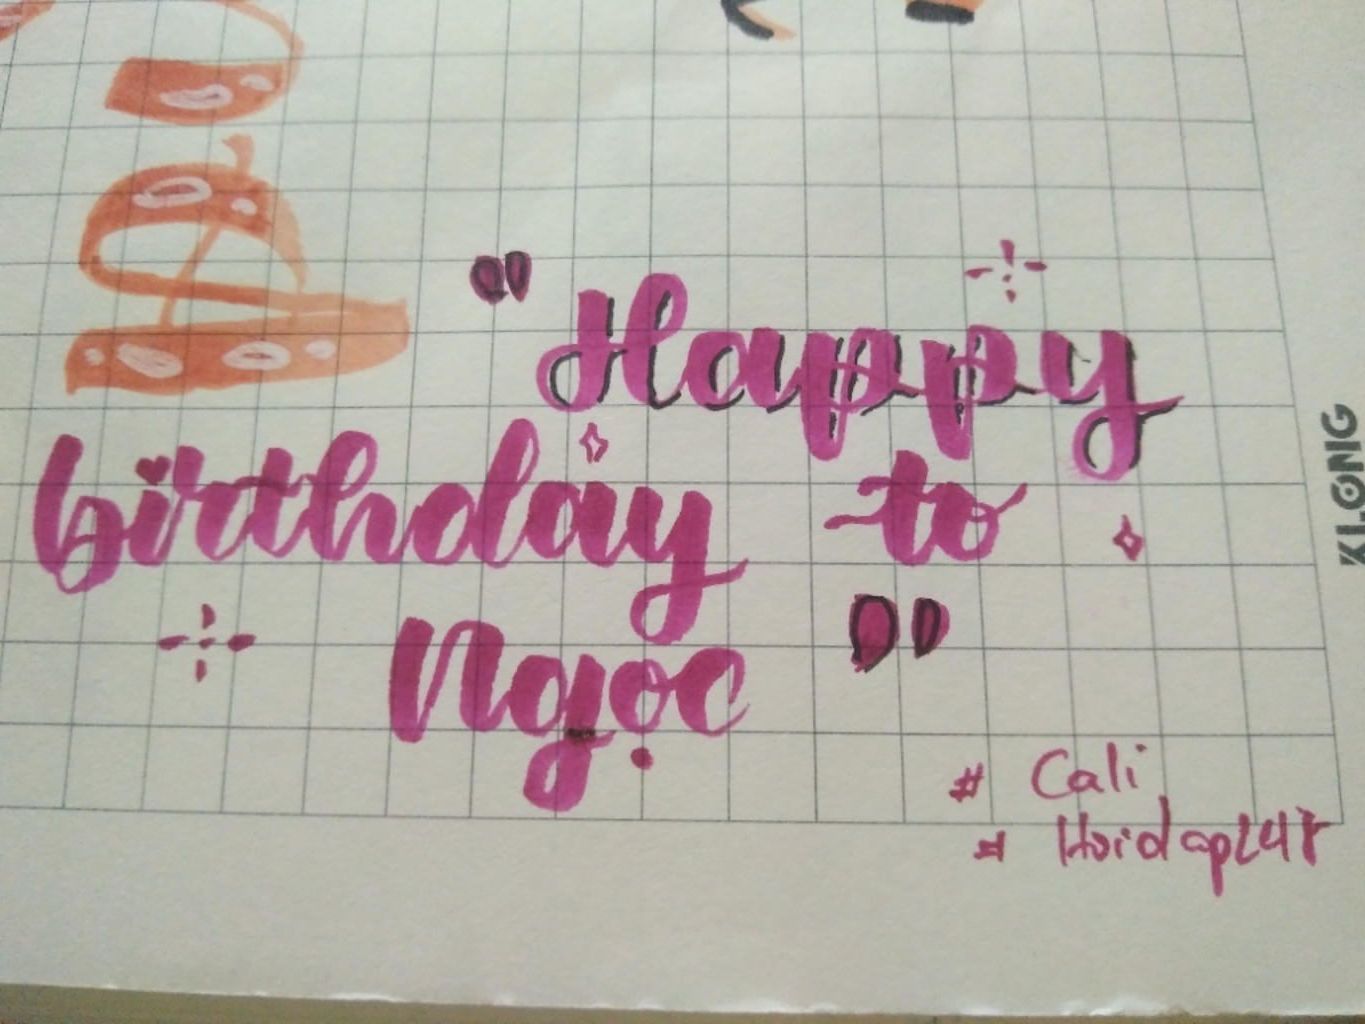 "Happy
birthday to
Ngọc"
# Cali
# Hoidap247
KLONG